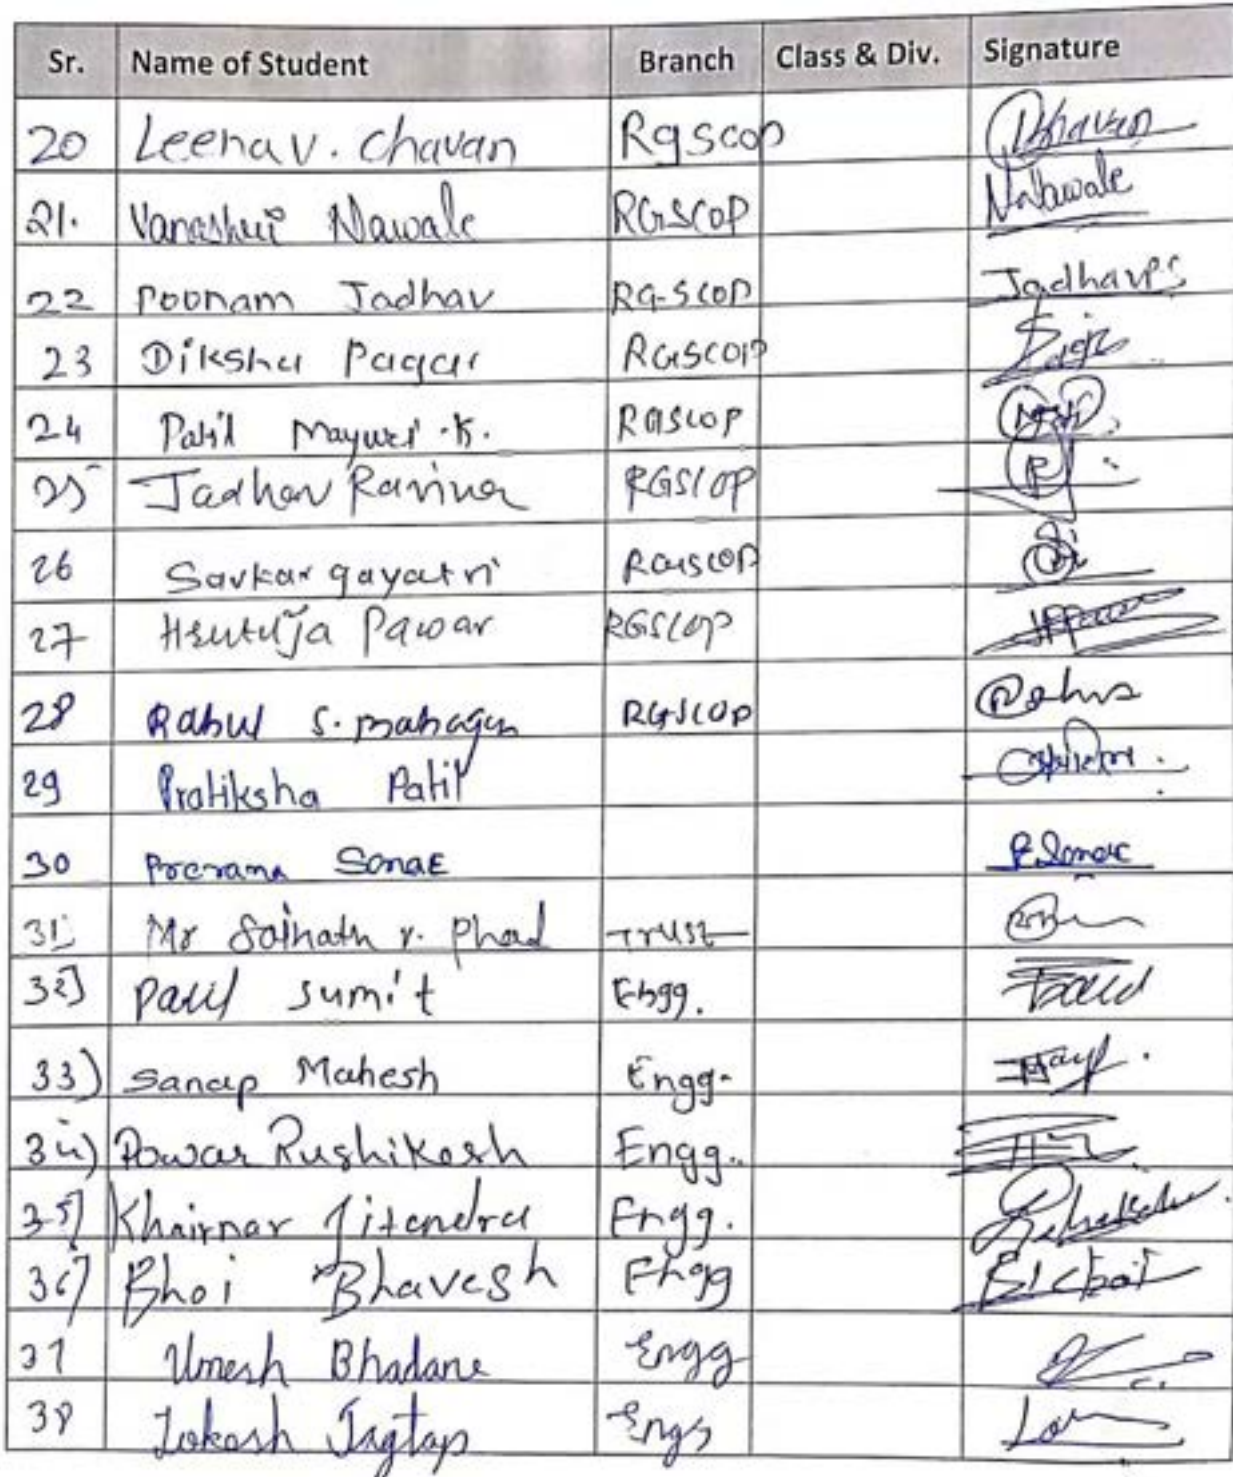 Sr. Name of Student Branch Class & Div. Signature
20 Leena V. Chavan Rgscop Chavan
21. Vanashri Nawale RGSCOP Nawale
22 Poonam Jadhav RG-SCOP JadhavPS
23 Diksha Pagar RGSCOP
24 Patil Mayuri .K. RGSCOP
25 Jadhav Ravina RGSCOP
26 Savkar gayatri RGSCOP
27 Hrutuja Pawar RGSCOP
28 Rahul S. Mahajan RGSCOP
29 Pratiksha Patil
30 Prerana Sonar P.Sonar
31) Mr Sainath V. Phad Trust
32) Patil Sumit Engg.
33) Sanap Mahesh Engg.
34) Pawar Rushikesh Engg..
35) Khairnar Jitendra Engg.
36) Bhoi Bhavesh Engg
37 Umesh Bhadane Engg
38 Lokesh Jagtap Engg